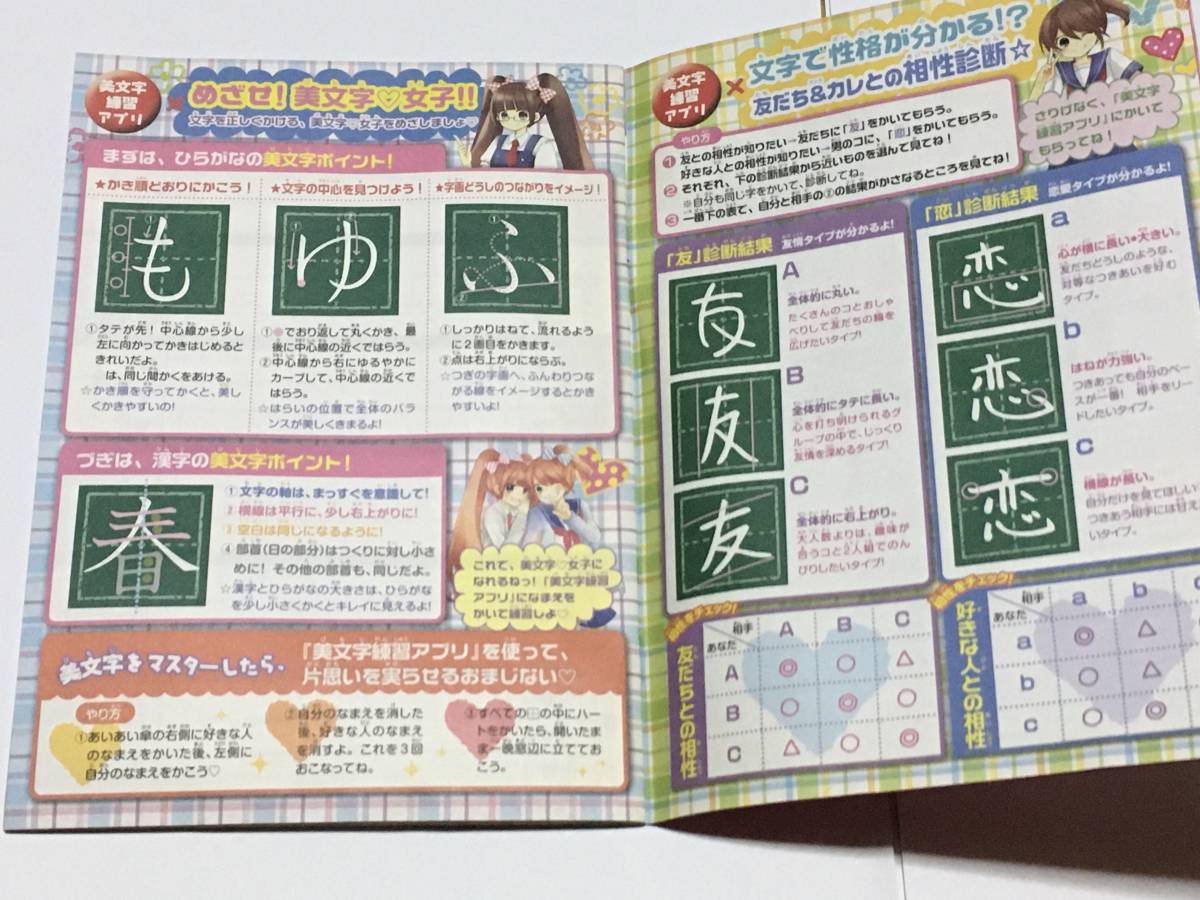 美文字
練習
アプリ
めざせ！美文字♡女子!!
文字を正しくかける、美文字♡女子をめざしましょ♡
まずは、ひらがなの美文字ポイント！
★かき順どおりにかこう！
も
①タテが先！中心線から少し
左に向かってかきはじめると
きれいだよ。
は、同じ間かくをあける。
☆かき順を守ってかくと、美し
くかきやすいの！
★文字の中心を見つけよう！
ゆ
①●でおり返して丸くかき、最
後に中心線の近くではらう。
②中心線から右にゆるやかに
カーブして、中心線の近くで
はらう。
☆はらいの位置で全体のバラ
ンスが美しくきまるよ！
★字画どうしのつながりをイメージ！
ふ
①しっかりはねて、流れるよう
に2画目をかきます。
②点は右上がりにならぶ。
☆つぎの字画へ、ふんわりつな
がる線をイメージするとかき
やすいよ！
つぎは、漢字の美文字ポイント！
春
①文字の軸は、まっすぐを意識して！
②横線は平行に、少し右上がりに！
③空白は同じになるように！
④部首（日の部分）はつくりに対し小さ
めに！その他の部首も、同じだよ。
☆漢字とひらがなの大きさは、ひらがな
を少し小さくかくとキレイに見えるよ！
これで、美文字♡女子に
なれるねっ！「美文字練習
アプリ」になまえを
かいて練習しよ♡
美文字をマスターしたら、
「美文字練習アプリ」を使って、
片思いを実らせるおまじない♡
やり方
①あいあい傘の右側に好きな人
のなまえをかいた後、左側に
自分のなまえをかこう♡
②自分のなまえを消した
後、好きな人のなまえ
を消すよ。これを3回
おこなってね。
③すべての田の中にハー
トをかいたら、開いたま
ま一晩窓辺に立ててお
こう。
美文字
練習
アプリ
文字で性格が分かる!?
友だち&カレとの相性診断☆
さりげなく、「美文字
練習アプリ」にかいて
もらってね！
やり方
①友との相性が知りたい→友だちに「友」をかいてもらう。
好きな人との相性が知りたい→男のコに、「恋」をかいてもらう。
②それぞれ、下の診断結果から近いものを選んで見てね！
※自分も同じ字をかいて、診断してね。
③一番下の表で、自分と相手の②の結果がかさなるところを見てね！
「友」診断結果 友情タイプが分かるよ！
友
A
全体的に丸い。
たくさんのコとおしゃ
べりして友だちの輪を
広げたいタイプ！
友
B
全体的にタテに長い。
心を打ち明けられるグ
ループの中で、じっくり
友情を深めるタイプ！
友
C
全体的に右上がり。
大人数よりは、趣味が
合うコと2人組でのん
びりしたいタイプ！
「恋」診断結果 恋愛タイプが分かるよ！
恋
a
心が横に長い・大きい。
友だちどうしのような、
対等なつきあいを好む
タイプ。
恋
b
はねが力強い。
つきあっても自分のペー
スが一番！相手をリー
ドしたいタイプ。
恋
c
横線が長い。
自分だけを見てほしい
つきあう相手には甘え
いタイプ。
相性をチェック！
友だちとの相性
相手 A B C
あなた
A ◎ ○ △
B ○ ◎ ○
C △ ○ ◎
相性をチェック！
好きな人との相性
相手 a b
あなた
a ◎ △
b ○ △
c ○ ◎